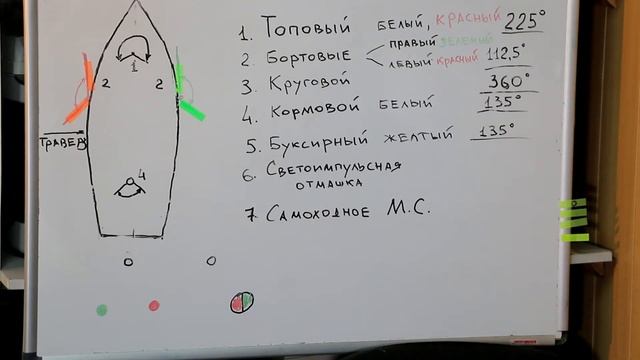 1. Топовый белый, красный 225°
2. Бортовые правый зеленый 112,5°
левый красный
3. Круговой 360°
4. Кормовой белый 135°
5. Буксирный желтый 135°
6. Светоимпульсная
отмашка
7 Самоходное М.С.
1
2 2
Траверз
4